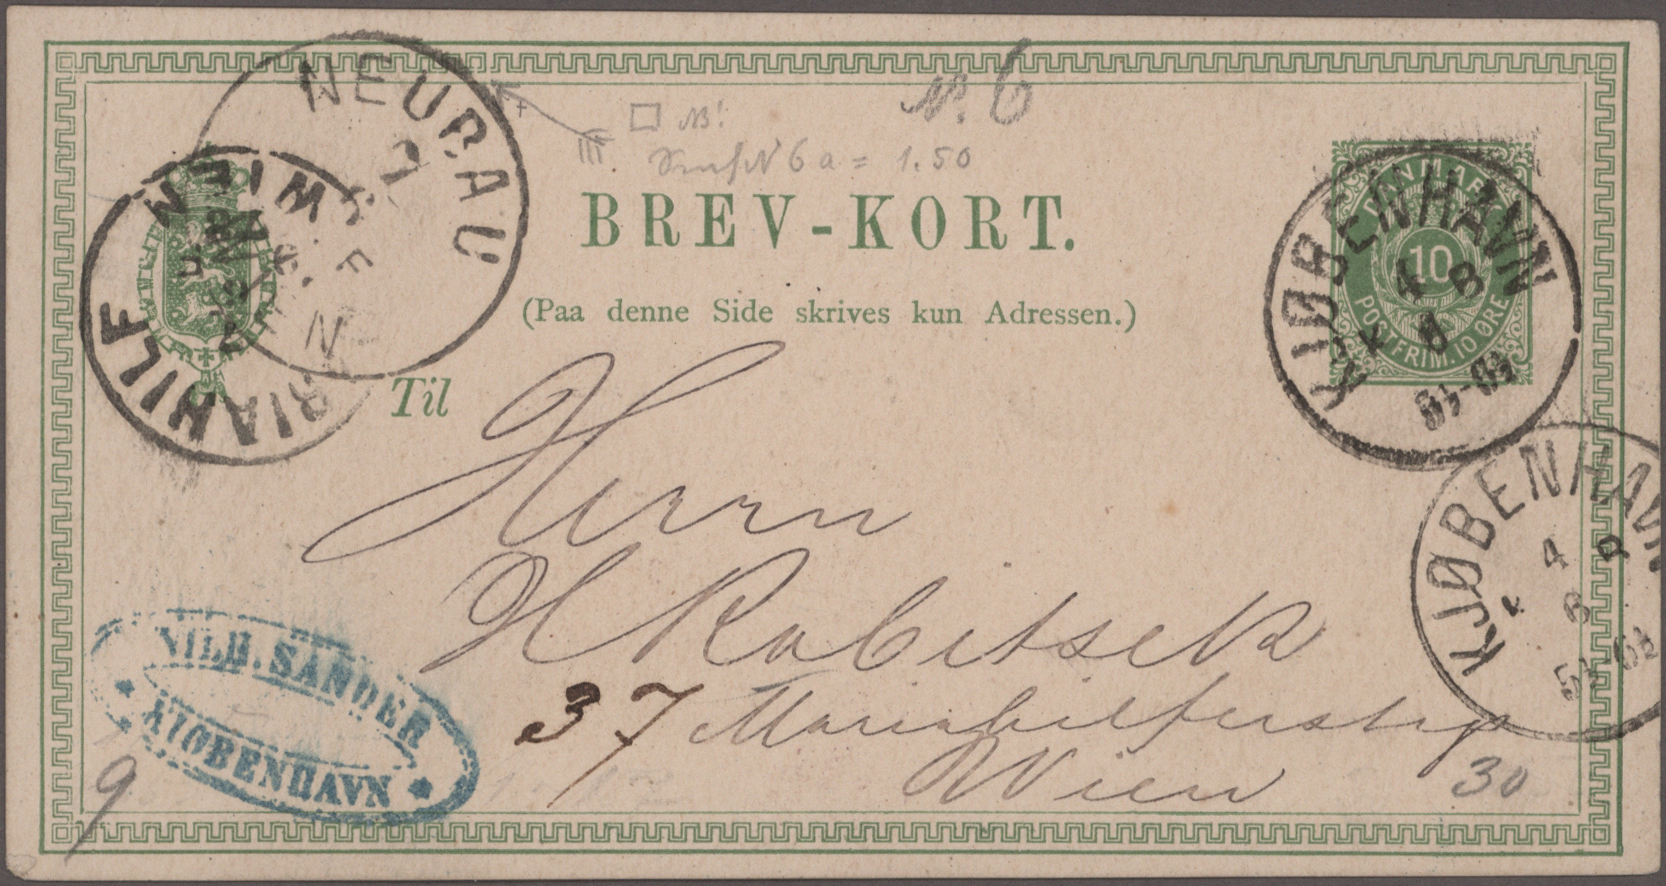 NEUBAU
WIEN
No. 6
NB!
6a = 1.50
BREV-KORT.
(Paa denne Side skrives kun Adressen.)
DANMARK
10
POSTFRIM. 10 ØRE
KJØBENHAVN
4 8
KJØBENHAVN
4
8
WIEN
MARIAHILF
Til
Herrn
H Rabitsek
37 Mariahilferstrasse
Wien
VILH. SANDER
KJØBENHAVN
9
30